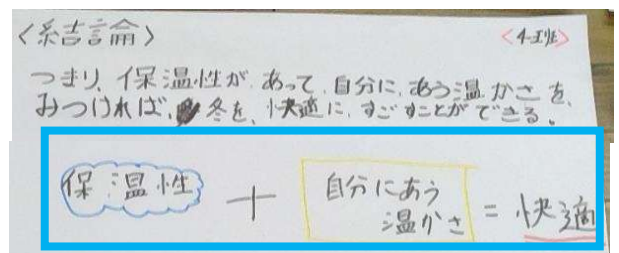 〈結論〉
〈4-1班〉
つまり、保温性が、あって、自分に、あう温かさを、
みつければ、冬を、快適に、すごすことができる。
保温性 + 自分にあう温かさ = 快適